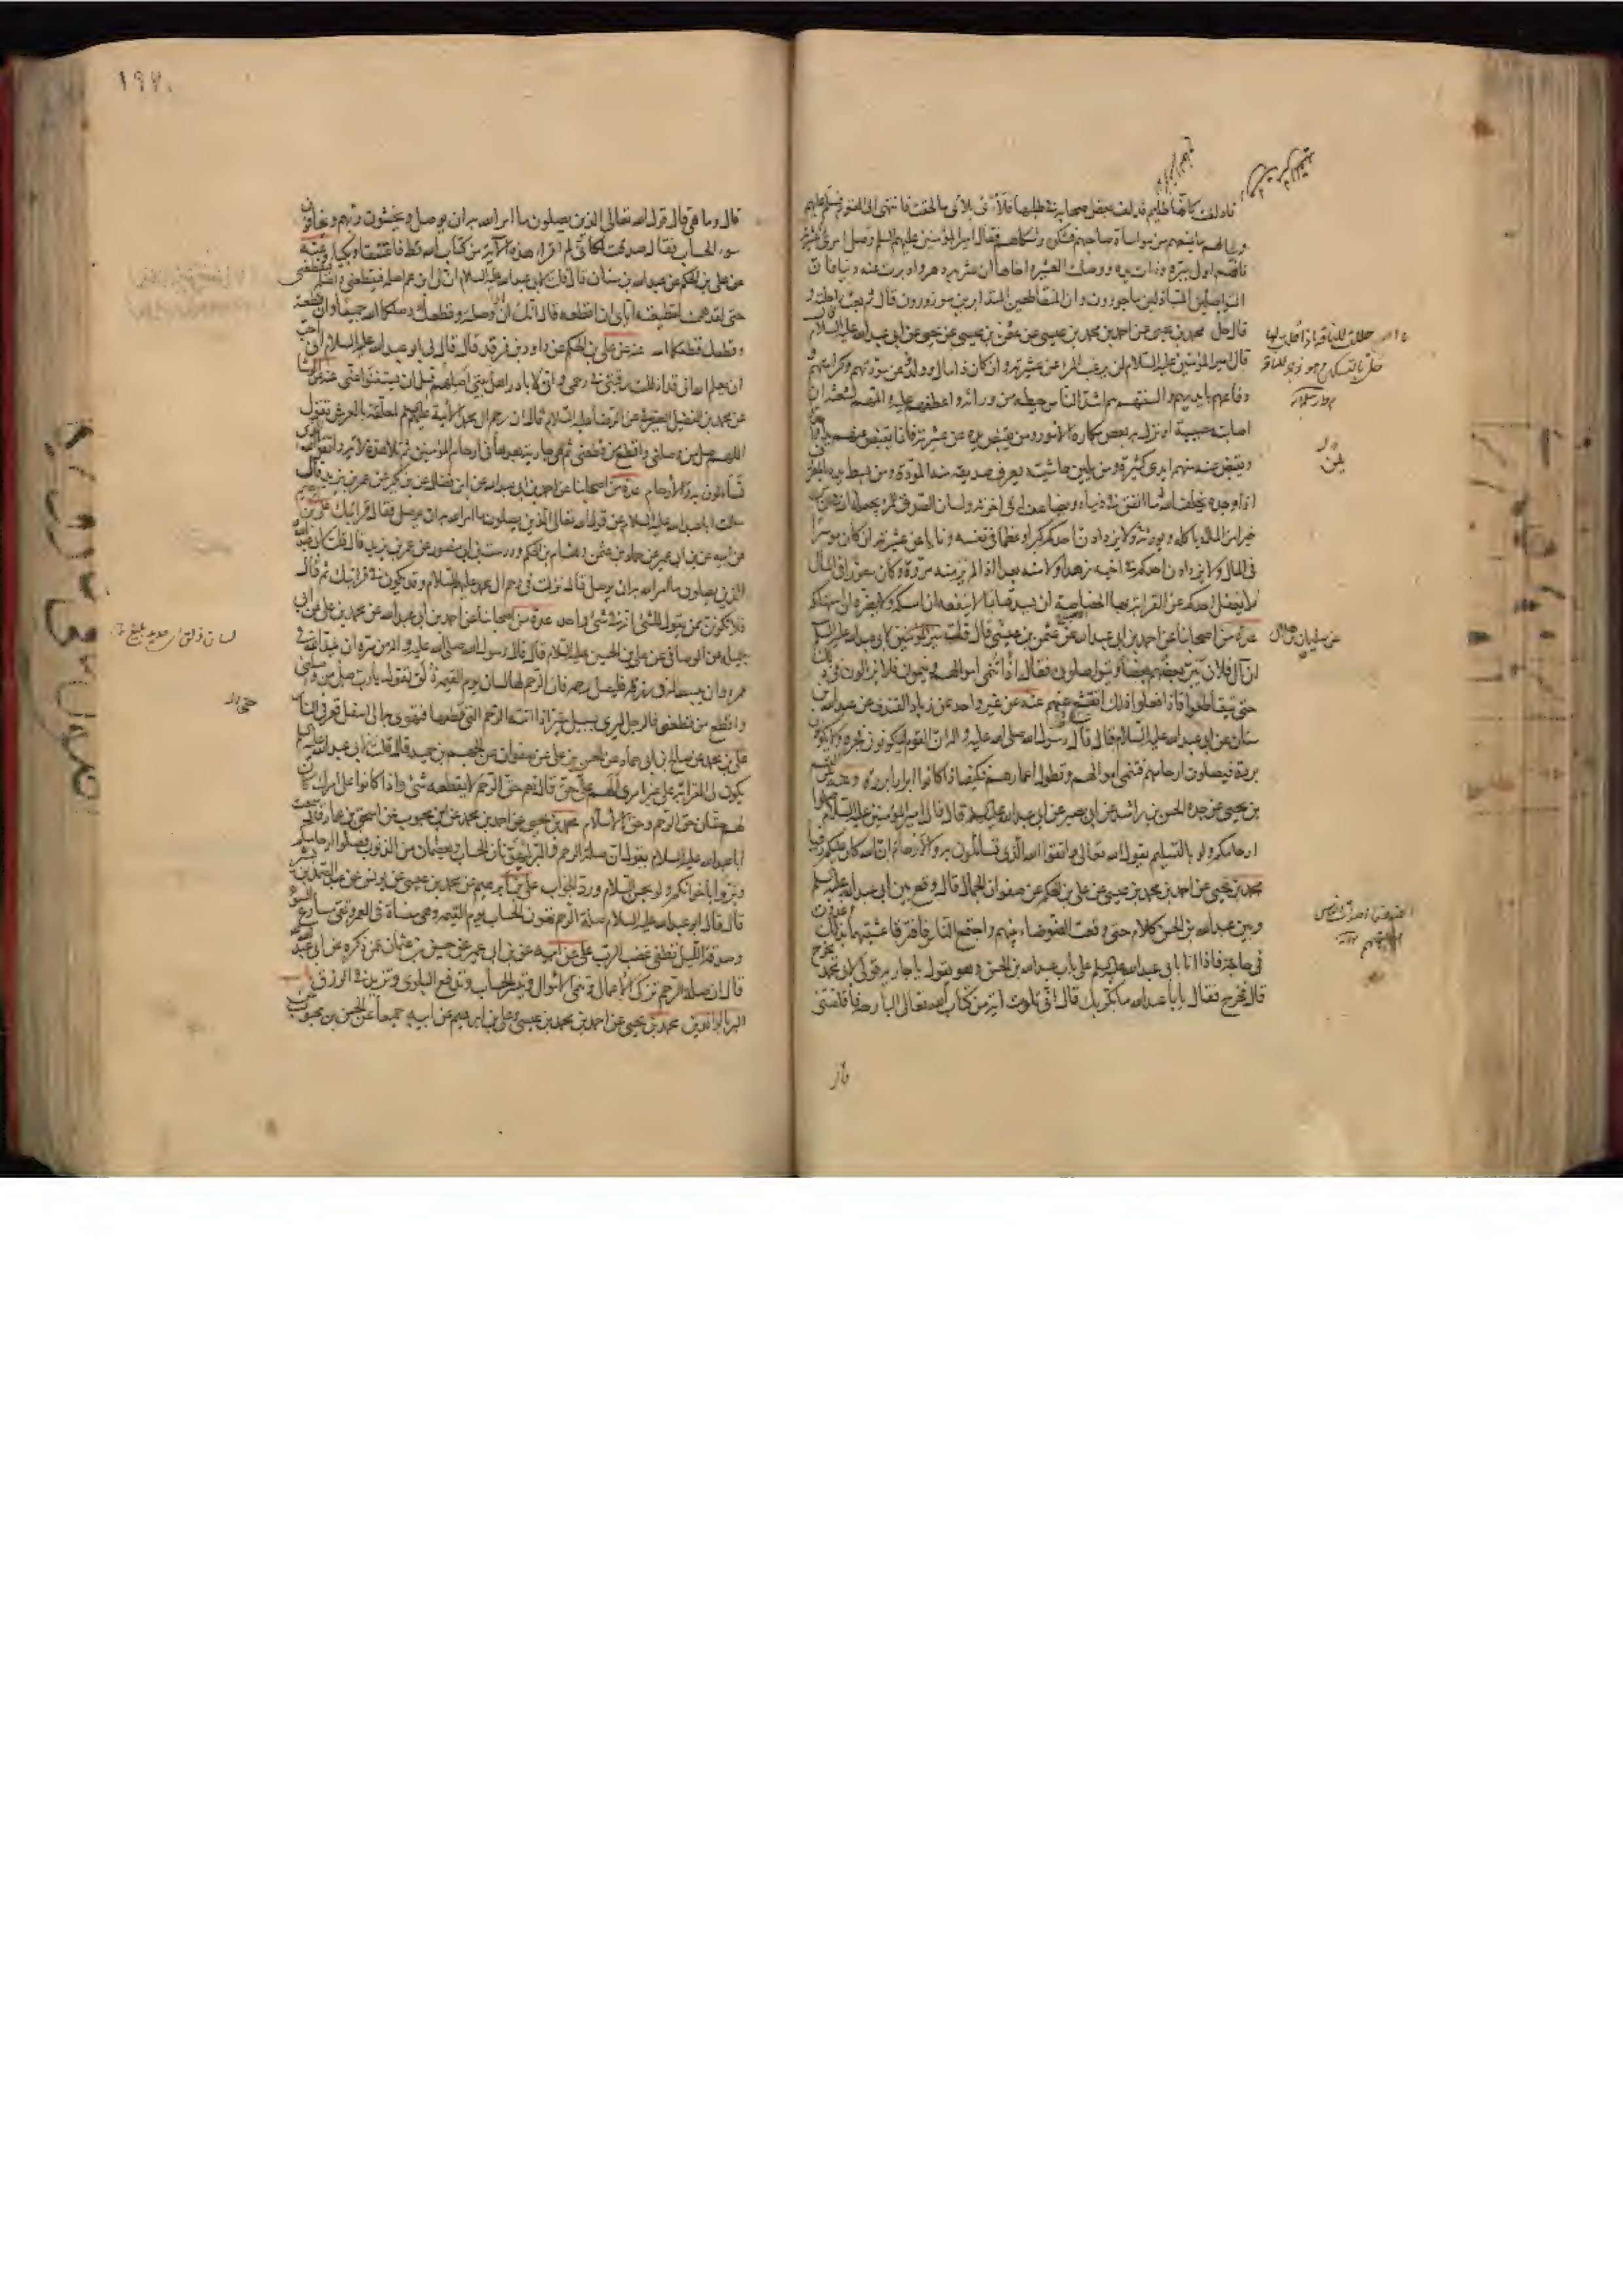 فادلفت كانها ظليم فدلف بعض اصحابه في طلبها فلأيا بلأي ما لحقت فانتهى الى القوم فسلم عليهم
وسالهم ما يمنعهم من مواساة صاحبهم فشكوه وشكاهم فقال امير المؤمنين عليه السلم وصل امرؤ عشيرته
فانهم اولى ببره وذات يده ووصلت العشيرة اخاها ان عثر به دهر وادبرت عنه دنيا فان
المتواصلين المتباذلين ماجورون وان المتقاطعين المتدابرين موزورون قال ثم بعث راحلته و
قال حل محمد بن يحيى عن احمد بن محمد بن عيسى عن عثمن بن عيسى عن يحيى عن ابي عبد الله عليه السلام
قال امير المؤمنين عليه السلام لن يرغب المرء عن عشيرته وان كان ذا مال وولد وعن مودتهم وكرامتهم و
دفاعهم بايديهم والسنتهم هم اشد الناس حيطة من ورائه واعطفهم عليه والمهم لشعثه ان
اصابته مصيبة او نزل به بعض مكاره الامور ومن يقبض يده عن عشيرته فانما يقبض عنهم يدا
وتقبض عنه منهم ايدي كثيرة ومن يلين حاشيته يعرف صديقه منه المودة ومن بسط يده بالمعروف
اذا وجده يخلف الله له ما انفق في دنياه ويضاعف له في اخرته ولسان الصدق للمرء يجعله الله في الناس
خيرا من المال ياكله ويورثه ولا يزدادن احدكم كبرا وعظما في نفسه ونايا عن عشيرته ان كان موسرا
في المال ولا يزدادن احدكم في اخيه زهدا ولا منه بعدا اذا لم ير منه مروة وكان معوزا في المال
لا يغفل احدكم عن القرابة بها الخصاصة ان يسدها بما لا ينفعه ان امسكه ولا يضره ان استهلكه
عدة من اصحابنا عن احمد بن ابي عبد الله عن عثمن بن عيسى قال قلت لابي عبد الله عليه السلم
ان آل فلان يبر بعضهم بعضا ويتواصلون فقال اذا تنمى اموالهم وينمون فلا يزالون في ذلك
حتى يتقاطعوا فاذا فعلوا ذلك انقشع عنهم عنه عن غير واحد عن زياد القندي عن عبد الله بن
سنان عن ابي عبد الله عليه السلام قال قال رسول الله صلى الله عليه واله ان القوم ليكونون فجرة ولا يكونون
بررة فيصلون ارحامهم فتنمى اموالهم وتطول اعمارهم فكيف اذا كانوا ابرارا بررة وعنه عن القسم
بن يحيى عن جده الحسن بن راشد عن ابي بصير عن ابي عبد الله عليه السلم قال قال امير المؤمنين عليه السلام صلوا
ارحامكم ولو بالتسليم يقول الله تعالى واتقوا الله الذي تساءلون به والارحام ان الله كان عليكم رقيبا
محمد بن يحيى عن احمد بن محمد بن عيسى عن علي بن الحكم عن صفوان الجمال قال وقع بين ابي عبد الله عليه السلم
وبين عبد الله بن الحسن كلام حتى وقعت الضوضاء بينهم واجتمع الناس فافترقا عشيتهما بذلك وغدوت
في حاجة فاذا انا بابي عبد الله عليه السلم على باب عبد الله بن الحسن وهو يقول يا جارية قولي لابي محمد يخرج
قال فخرج فقال يا ابا عبد الله ما بكر بك قال اني تلوت اية من كتاب الله تعالى البارحة فاقلقتني
قال
عن سليمان بن هلال
١٩٧
قال وما هي قال قول الله تعالى الذين يصلون ما امر الله به ان يوصل ويخشون ربهم ويخافون
سوء الحساب فقال صدقت لكاني لم اقرا هذه الآية من كتاب الله قط فاعتنقا وبكيا وعنه
عن علي بن الحكم عن عبد الله بن سنان قال قلت لابي عبد الله عليه السلام ان لي ابن عم اصله فيقطعني واصله فيقطعني
حتى لقد هممت لقطيعته اياي ان اقطعه قال انك ان وصلته وقطعك وصلكما الله جميعا وان قطعته
وقطعك قطعكما الله عنه عن علي بن الحكم عن داود بن فرقد قال قال لي ابو عبد الله عليه السلام اني احب
ان يعلم الله اني قد اذللت رقبتي في رحمي واني لابادر اهل بيتي اصلهم قبل ان يستغنوا عني عنه عن الوشا
عن محمد بن الفضيل الصيرفي عن الرضا عليه السلام قال ان رحم آل محمد الائمة عليهم السلم لمعلقة بالعرش تقول
اللهم صل من وصلني واقطع من قطعني ثم هي جارية بعدها في ارحام المؤمنين ثم تلا هذه الآية واتقوا الله الذي
تساءلون به والارحام عدة من اصحابنا عن احمد بن ابي عبد الله عن ابن فضال عن ابن بكير عن عمر بن يزيد قال
سالت ابا عبد الله عليه السلام عن قول الله تعالى الذين يصلون ما امر الله به ان يوصل فقال قرابتك علي بن ابراهيم
عن ابيه عن ابن ابي عمير عن حماد بن عثمن وهشام بن الحكم ودرست بن ابي منصور عن عمر بن يزيد قال قلت لابي عبد الله
الذين يصلون ما امر الله به ان يوصل قال نزلت في رحم آل محمد عليهم السلام وقد يكون في قرابتك ثم قال
فلا تكونن ممن يقول للشئ انه في شئ واحد عدة من اصحابنا عن احمد بن ابي عبد الله عن محمد بن علي عن ابي
جميلة عن الوصافي عن علي بن الحسين عليه السلام قال قال رسول الله صلى الله عليه واله من سره ان يمد الله في
عمره وان يبسط له في رزقه فليصل رحمه فان الرحم لها لسان يوم القيمة ذلق تقول يا رب صل من وصلني
واقطع من قطعني فالرجل ليرى بسبيل خير اذا اتته الرحم التي قطعها فتهوي به الى اسفل قعر في النار
علي بن محمد عن صالح بن ابي حماد عن الحسن بن علي عن صفوان عن الجهم بن حميد قال قلت لابي عبد الله عليه السلم
يكون لي القرابة على غير امري الهم علي حق قال نعم حق الرحم لا يقطعه شئ واذا كانوا على امرك كان
لهم حقان حق الرحم وحق الاسلام محمد بن يحيى عن احمد بن محمد عن ابن محبوب عن اسحق بن عمار قال سمعت
ابا عبد الله عليه السلام يقول ان صلة الرحم والبر ليهونان الحساب ويعصمان من الذنوب فصلوا ارحامكم
وبروا باخوانكم ولو بحسن السلام ورد الجواب علي بن ابراهيم عن محمد بن عيسى عن يونس عن عبد الصمد بن بشير
قال قال ابو عبد الله عليه السلام صلة الرحم تهون الحساب يوم القيمة وهي منساة في العمر وتقي مصارع السوء
وصدقة الليل تطفئ غضب الرب علي عن ابيه عن ابن ابي عمير عن حسين بن عثمان عمن ذكره عن ابي عبد الله
قال ان صلة الرحم تزكي الاعمال وتنمي الاموال وتيسر الحساب وتدفع البلوى وتزيد في الرزق باب
البر بالوالدين محمد بن يحيى عن احمد بن محمد بن عيسى وعلي بن ابراهيم عن ابيه جميعا عن الحسن بن محبوب